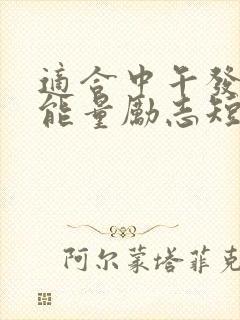 適合中午發
能量勵志短
阿尔蒙塔菲克